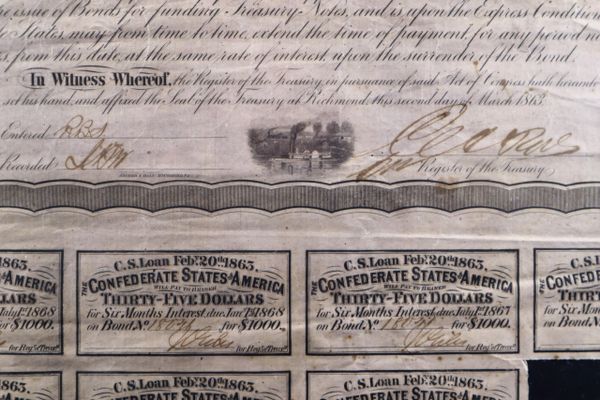 issue of Bonds for funding Treasury Notes, and is upon the Express Condition
States, may from time to time, extend the time of payment, for any period
from this date, at the same rate of interest, upon the surrender of the Bond.
In Witness Whereof, the Register of the Treasury, in pursuance of said Act of Congress hath hereunto
set his hand, and affixed the Seal of the Treasury, at Richmond, this second day of March 1863.
Entered
Recorded
Register of the Treasury
C.S. Loan Feby. 20th 1863.
CONFEDERATE STATES OF AMERICA
DOLLARS
July 1st 1868
for $1000.
for Regr. of Treasy.
C.S. Loan Feby. 20th 1863.
THE CONFEDERATE STATES OF AMERICA
WILL PAY TO BEARER
THIRTY-FIVE DOLLARS
for Six Months Interest due Jany. 1st 1868
on Bond No. for $1000.
for Regr. of Treasy.
C.S. Loan Feby. 20th 1863.
THE CONFEDERATE STATES OF AMERICA
WILL PAY TO BEARER
THIRTY-FIVE DOLLARS
for Six Months Interest due July 1st 1867
on Bond No. for $1000.
for Regr. of Treasy.
C.S. Loan
THE CONFEDERATE
THIRTY-
for Six Months
on Bond No.
C.S. Loan Feby. 20th 1863.
CONFEDERATE STATES OF AMERICA
C.S. Loan Feby. 20th 1863.
CONFEDERATE STATES OF AMERICA